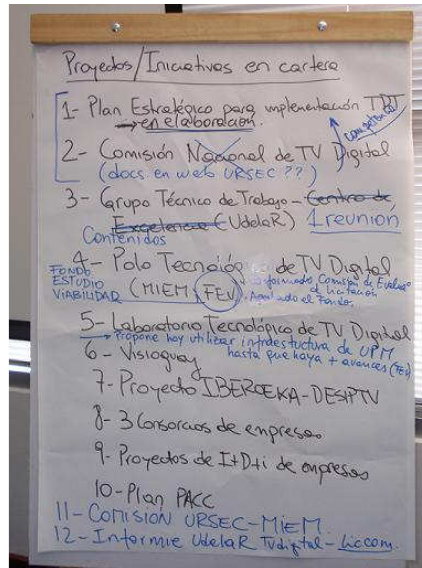 Proyectos/Iniciativas en cartera
1- Plan Estratégico para implementación TDT
→ en elaboración.
2- Comisión Nacional de TV Digital
(docs. en web URSEC ??)
3- Grupo Técnico de Trabajo - Centro de
Excelencia (UdelaR) 1 reunion
Contenidos
4- Polo Tecnológico de TV Digital
FONDO
ESTUDIO
VIABILIDAD
(MIEM FEV)
conformado Comisión de Evaluac
de licitación
el Fondo.
5- Laboratorio Tecnológico de TV Digital
→ propone hoy utilizar infraestuctura de UPM
hasta que haya + avances (FEV)
6- Visioguay
7- Proyecto IBEROEKA-DESPTV
8- 3 Consorcios de empresas
9- Proyectos de I+D+i de empresas
10- Plan PACC
11- COMISIÓN URSEC-MIEM.
12- Informe UdelaR TVdigital - Liccom.